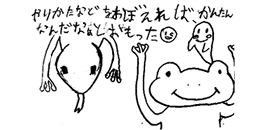 やりかたなどをおぼえれば、かんたん
なんだなあとおもった